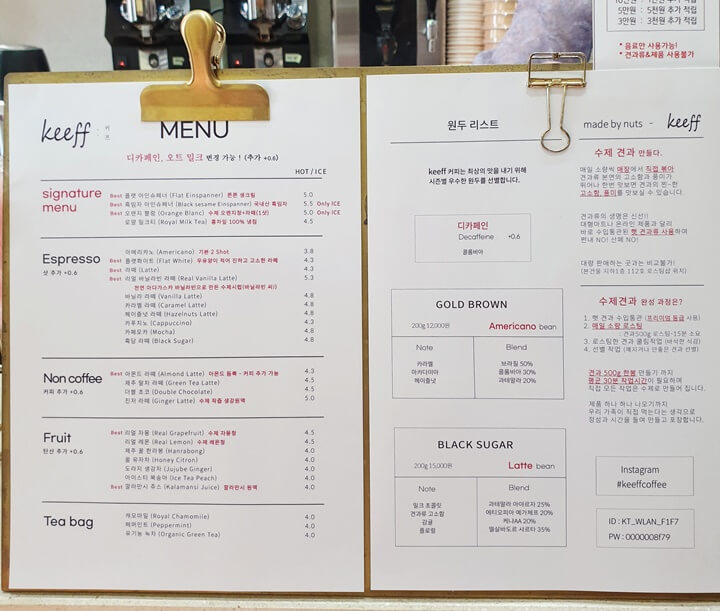 5만원 : 5천원 추가 적립
3만원 : 3천원 추가 적립
* 음료만 사용가능!
* 견과류&제품 사용불가
keeff
키프
MENU
디카페인, 오트 밀크 변경 가능 ! (추가 +0.6)
HOT / ICE
signature menu
Best 플랫 아인슈페너 (Flat Einspanner) 쫀쫀 생크림 5.0
Best 흑임자 아인슈페너 (Black sesame Einspanner) 국내산 흑임자 5.5 Only ICE
Best 오렌지 블랑 (Orange Blanc) 수제 오렌지청+라떼(1샷) 5.0 Only ICE
로얄 밀크티 (Royal Milk Tea) 홍차잎 100% 냉침 4.5
Espresso
샷 추가 +0.6
아메리카노 (Americano) 기본 2 Shot 3.8
Best 플랫화이트 (Flat White) 우유양이 적어 진하고 고소한 라떼 4.3
Best 라떼 (Latte) 4.3
Best 리얼 바닐라빈 라떼 (Real Vanilla Latte) 5.3
천연 마다가스카 바닐라빈으로 만든 수제시럽(바닐라빈 씨))
바닐라 라떼 (Vanilla Latte) 4.8
카라멜 라떼 (Caramel Latte) 4.8
헤이즐넛 라떼 (Hazelnuts Latte) 4.8
카푸치노 (Cappuccino) 4.3
카페모카 (Mocha) 4.8
흑당 라떼 (Black Sugar) 4.8
Non coffee
커피 추가 +0.6
Best 아몬드 라떼 (Almond Latte) 아몬드 듬뿍 - 커피 추가 가능 4.3
제주 말차 라떼 (Green Tea Latte) 4.5
더블 초코 (Double Chocolate) 4.5
진저 라떼 (Ginger Latte) 수제 직즙 생강원액 5.0
Fruit
탄산 추가 +0.6
Best 리얼 자몽 (Real Grapefruit) 수제 자몽청 4.5
리얼 레몬 (Real Lemon) 수제 레몬청 4.5
제주 꿀 한라봉 (Hanrabong) 4.0
꿀 유자차 (Honey Citron) 4.0
도라지 생강차 (Jujube Ginger) 4.0
아이스티 복숭아 (Ice Tea Peach) 4.0
Best 깔라만시 쥬스 (Kalamansi Juice) 깔라만시 원액 4.0
Tea bag
캐모마일 (Royal Chamomile) 4.0
페퍼민트 (Peppermint) 4.0
유기농 녹차 (Organic Green Tea) 4.0
원두 리스트
keeff 커피는 최상의 맛을 내기 위해
시즌별 우수한 원두를 선별합니다.
디카페인
Decaffeine +0.6
콜롬비아
GOLD BROWN
200g 12,000원 Americano bean
Note Blend
카라멜 브라질 50%
마카다미아 콜롬비아 30%
헤이즐넛 과테말라 20%
BLACK SUGAR
200g 15,000원 Latte bean
Note Blend
밀크 초콜릿 과테말라 아야르자 25%
견과류 고소함 에티오피아 예가체프 20%
감귤 케냐AA 20%
플로럴 엘살바도르 사르타 35%
made by nuts - keeff
수제 견과 만들다.
매일 소량씩 매장에서 직접 볶아
견과류 본연의 고소함과 풍미가
뛰어나 한번 맛보면 견과의 찐-한
고소함, 풍미를 맛보실 수 있습니다.
견과류의 생명은 신선!!
대형마트나 온라인 제품과 달리
바로 수입통관된 햇 견과류 사용하여
쩐내 NO! 산패 NO!
대량 판매하는 곳과는 비교불가!
(본건물 지하1층 112호 로스팅샵 위치)
수제견과 완성 과정은?
1. 햇 견과 수입통관 (프리미엄 등급 사용)
2. 매일 소량 로스팅
: 견과500g 로스팅-15분 소요
3. 로스팅한 견과 쿨링작업 (바삭한 식감)
4. 선별 작업
견과 500g 한봉 만들기 까지
평균 30분 작업시간이 필요하며
직접 모든 작업은 수제로 만들어 집니다.
제품 하나 하나 나오기까지
우리 가족이 직접 먹는다는 생각으로
정성과 시간을 들여 만들고 포장합니다.
Instagram
#keeffcoffee
ID : KT_WLAN_F1F7
PW : 0000008f79